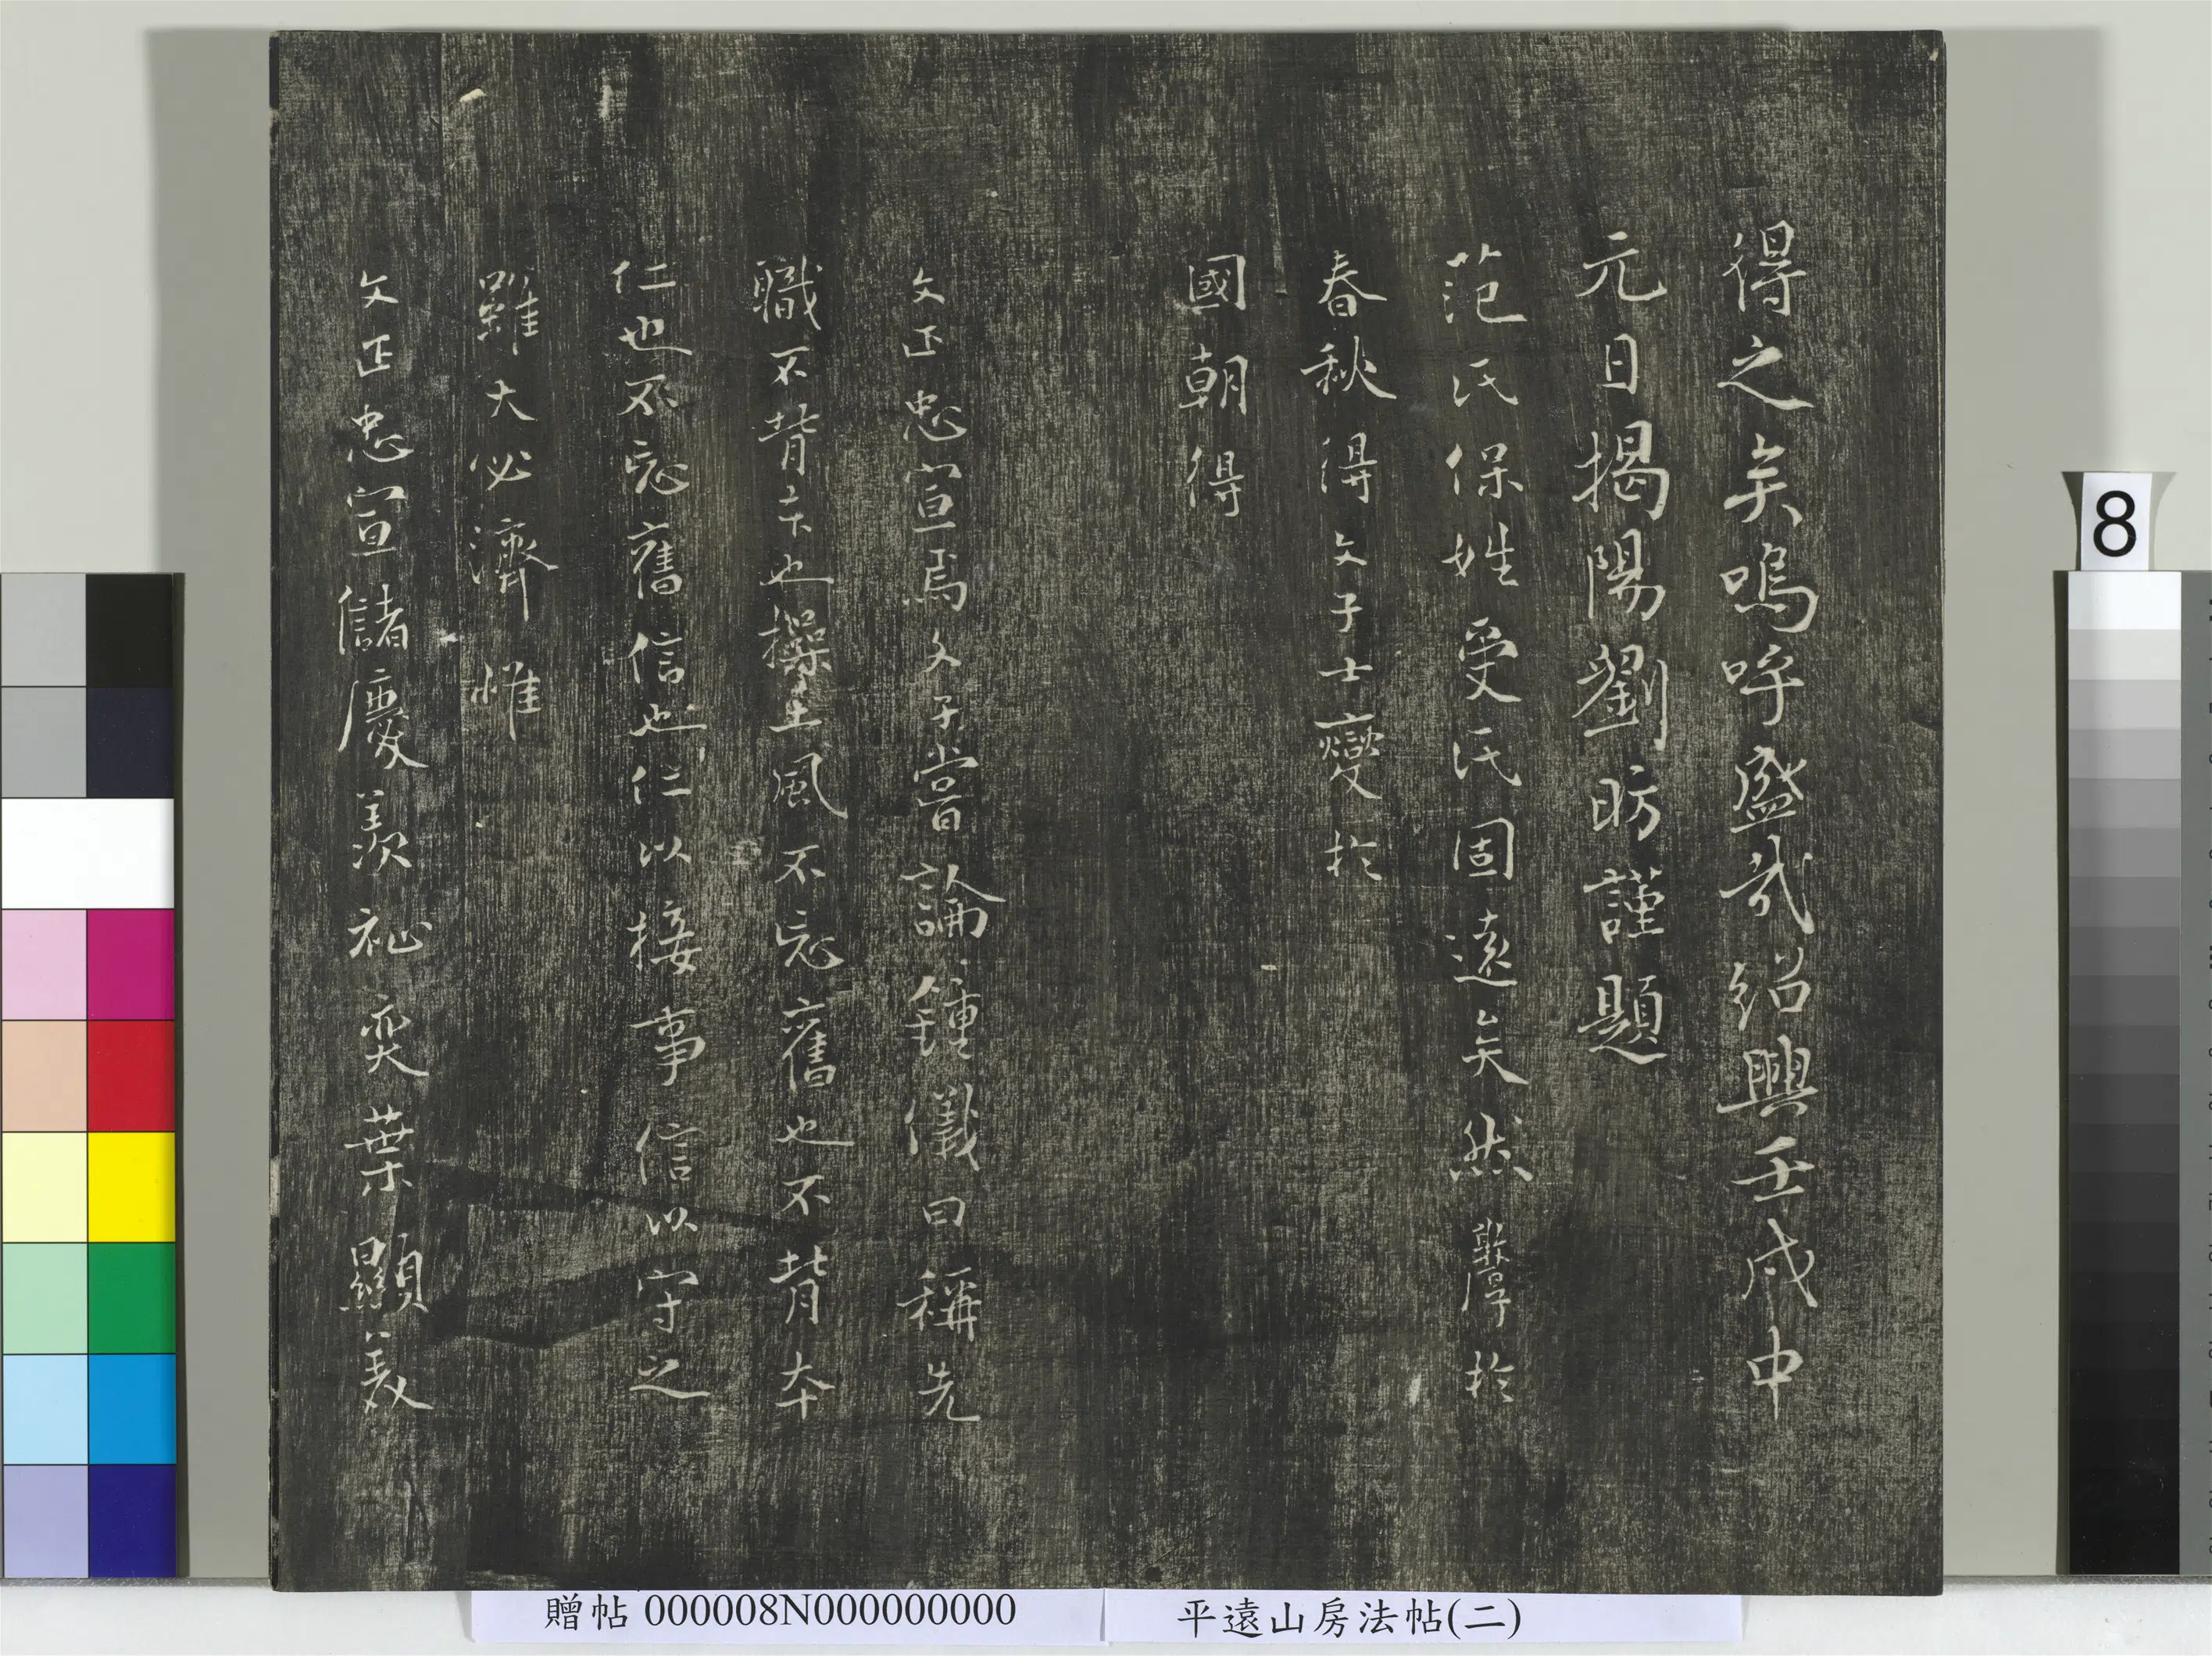 得之矣嗚呼盛哉紹興壬戌中
元日揭陽劉昉謹題
范氏保姓受氏固遠矣然
於
春秋得文子士燮於
國朝得
文正忠宣焉文子嘗論鍾儀曰稱先
職不背本也操土風不忘舊也不背本
仁也不忘舊信也仁以接事信以守之
雖大必濟惟
文正忠宣儲慶羨祉奕葉顯美
8
贈帖 000008N000000000
平遠山房法帖(二)